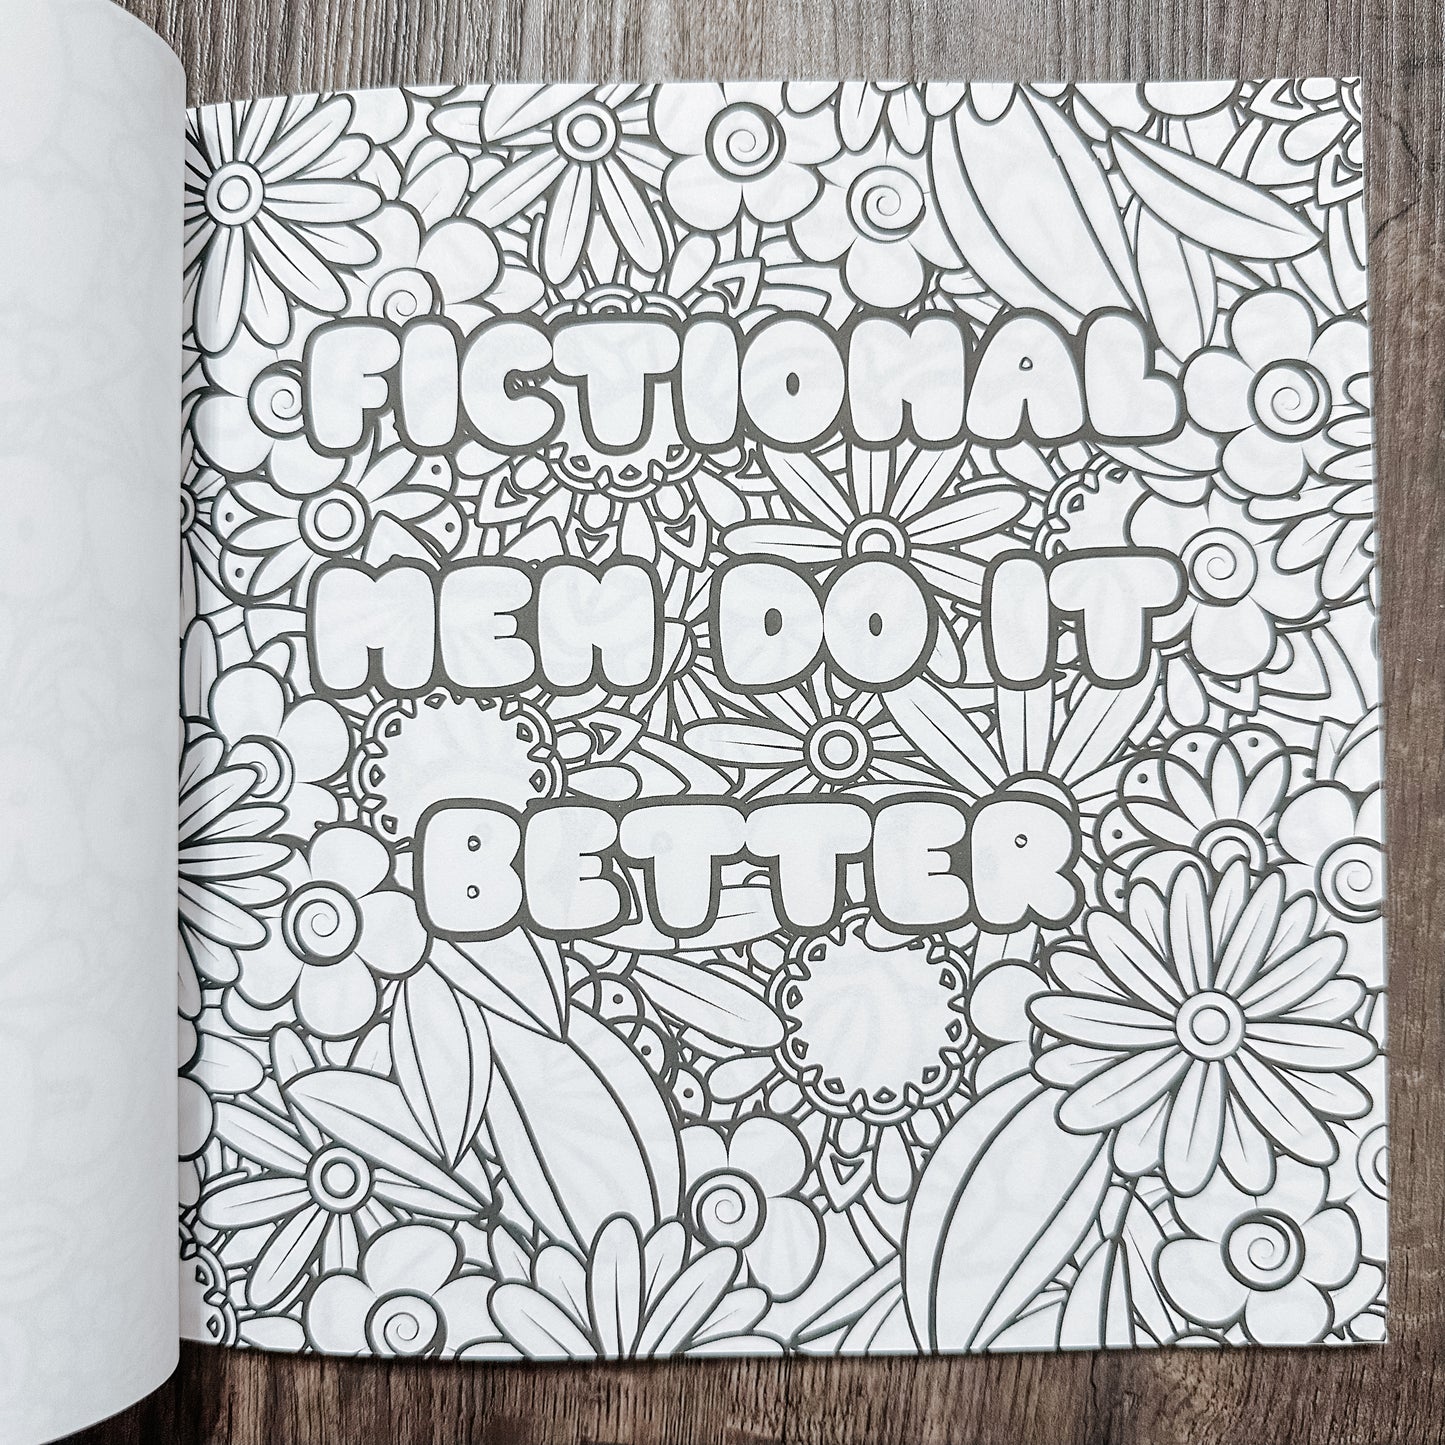 FICTIONAL
MEN DO IT
BETTER